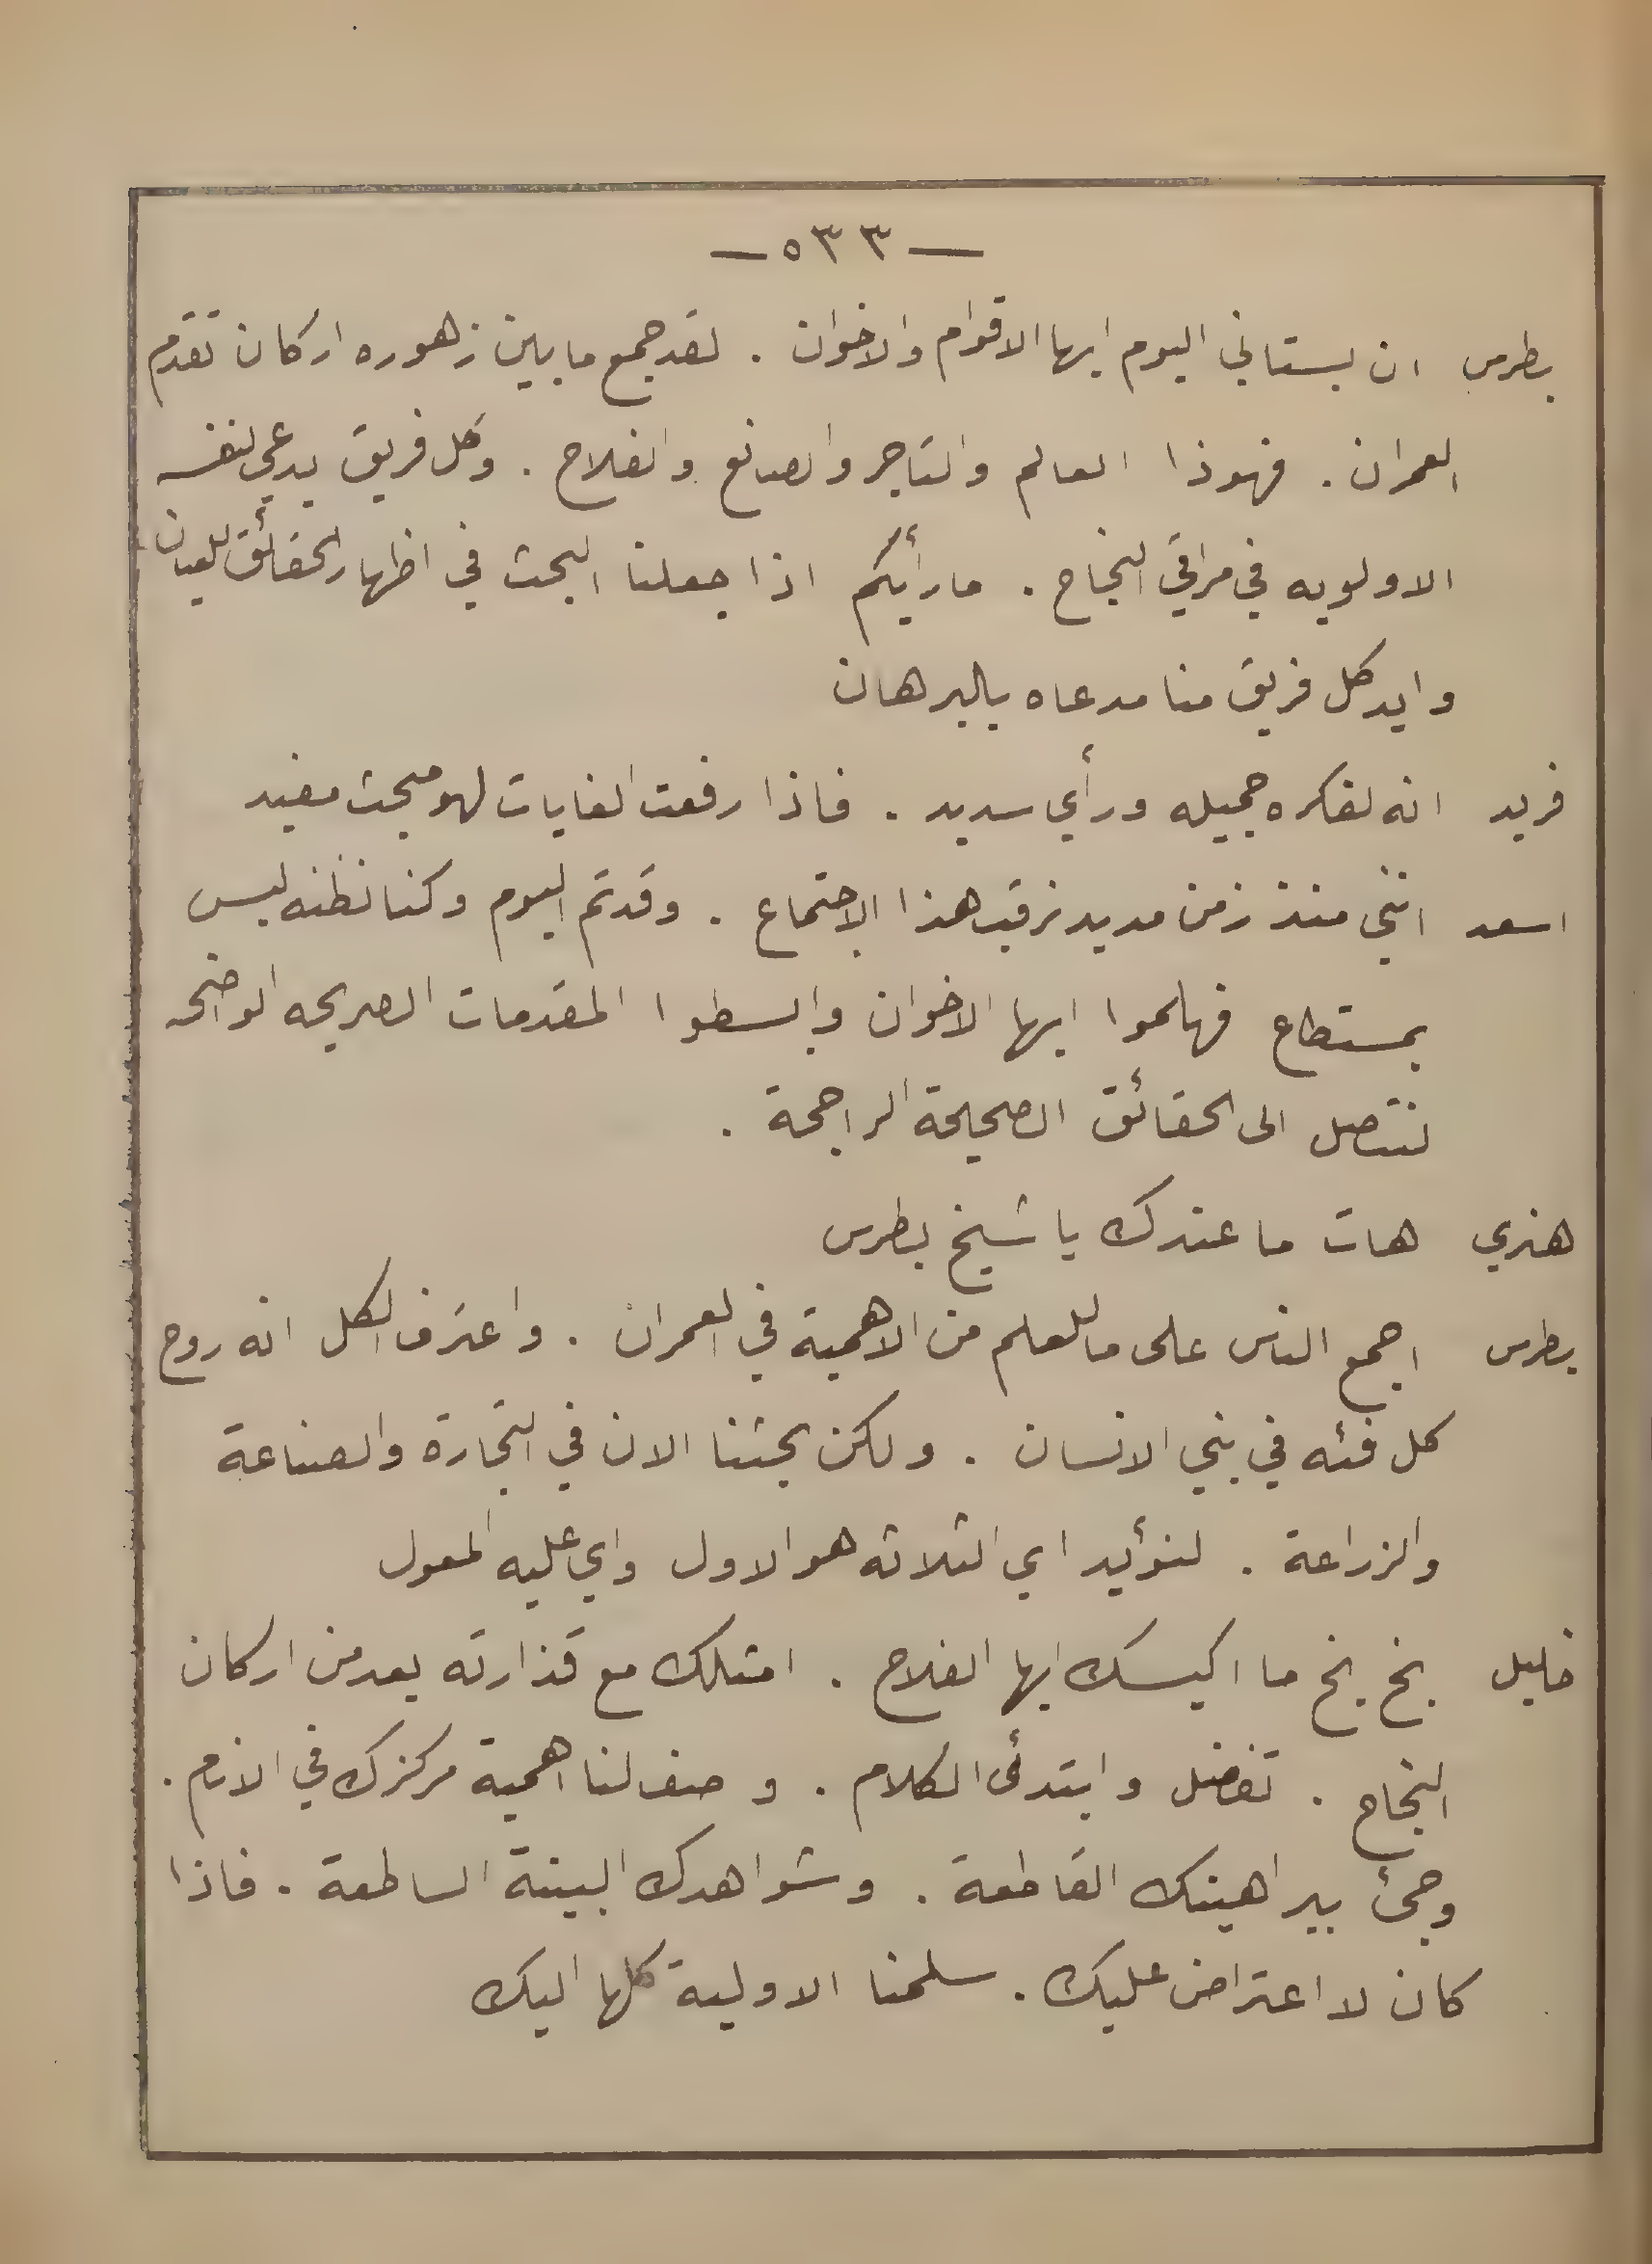 — ٥٣٣ —
بطرس ان بستاني اليوم ايها الاقوام والاخوان . لقد جمع ما بين زهوره اركان تقدم
العمران . فهوذا العالم والتاجر والصانع والفلاح . وكل فريق يدعي لنفسه
الاولويه في مراقي النجاح . ما رأيكم اذا جعلنا البحث في اظهار الحقائق للعيان
وايد كل فريق منا مدعاه بالبرهان
فريد انه لفكره جميله ورأي سديد . فاذا رفعت الغايات لهو مبحث مفيد
اسعد انني منذ زمن مديد نرقب هذا الاجتماع . وقد تم اليوم وكنا نظنه ليس
بمستطاع فهلموا ايها الاخوان وابسطوا المقدمات الصريحه الواضحه
لنتصل الى الحقائق الصحيحة الراجحة .
هنري هات ما عندك يا شيخ بطرس
بطرس اجمع الناس على ما للعلم من الاهمية في العمران . واعترف الكل انه روح
كل فئه في بني الانسان . ولكن بحثنا الان في التجارة والصناعة
والزراعة . لنؤيد اي الثلاثه هو الاول واي عليه المعول
خليل بخ بخ ما اكيسك ايها الفلاح . امثلك مع قذارته يعد من اركان
النجاح . تفضل وابتدئ الكلام . وصف لنا اهمية مركزك في الانام .
وجئ ببراهينك القاطعة . وشواهدك البينة الساطعة . فاذا
كان لا اعتراض عليك . سلمنا الاولية كلها اليك